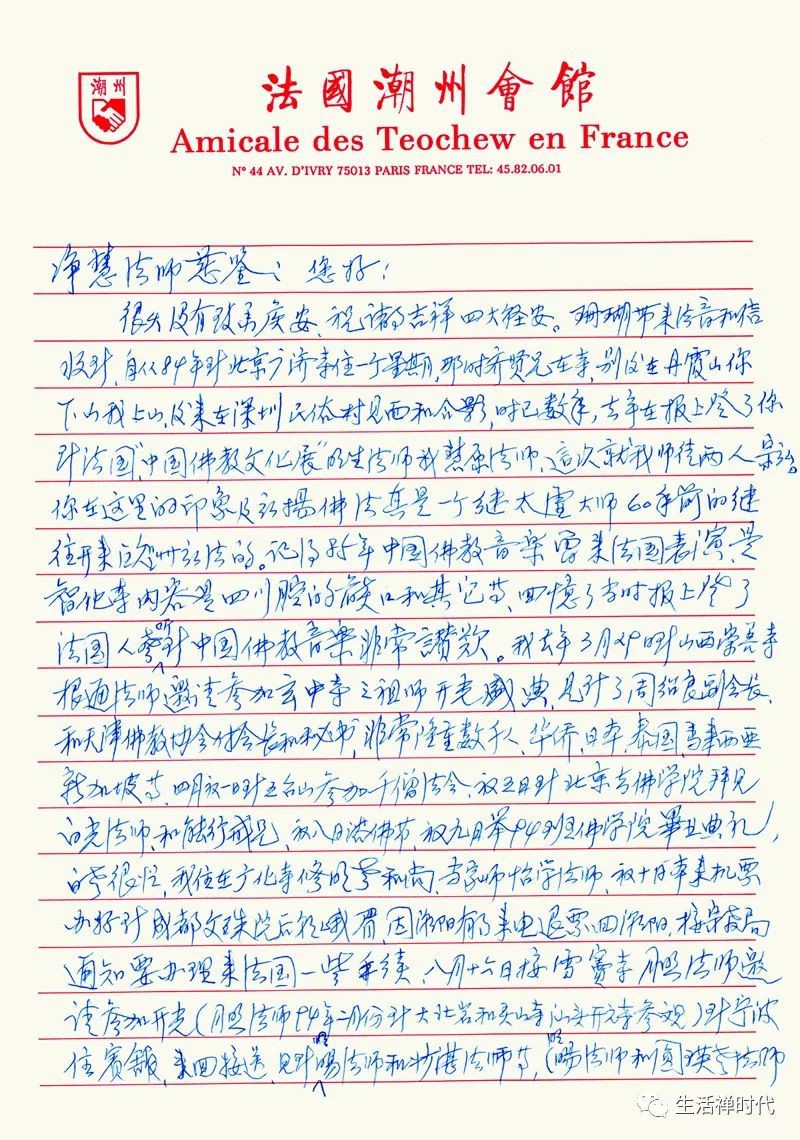 潮州
法國潮州會館
Amicale des Teochew en France
N° 44 AV. D'IVRY 75013 PARIS FRANCE TEL: 45.82.06.01
净慧法师慈鉴：您好！
很久没有致函候安、祝诸事吉祥四大轻安。珊瑚带来法音和信
收到，自从84年到北京广济寺住一个星期，那时齐贤兄在寺，别后在丹霞山你
下山我上山，后来在深圳民俗村见面和合影，时已数年，去年在报上登了你
到法国"中国佛教文化展" 法师 慧原法师，這次就我师徒两人
你在这里的印象及弘揚佛法真是一个继太虚大师60年前的继
往开来 欧洲弘法的。记得 年中国佛教音樂團来法国表演，是
智化寺内容是四川腔的 口和其它等，回憶了当时报上登了
法国人 听 到中国佛教音樂非常讃歎。我去年3月29日到山西崇善寺
根通法师邀请参加玄中寺三祖师开光盛典，见到了周绍良副会长，
和天津佛教协会付会长和秘书，非常隆重数千人，华侨，日本，泰国，马来西亚
新加坡等，四月初一日到五台山参加千僧法会，初五日到北京去佛学院拜见
白光法师，和能行戒兄，初八日浴佛节，初九日举94班佛学院畢业典礼，
的 很忙，我住在广化寺修明老和尚、当家师怡学法师，初十日本来机票
办好到成都文珠院后 峨眉，因 阳有事来电退票回 阳，接宗教局
通知要办理来法国一些手续，八月十六日接雪窦寺月照法师邀
请参加开光（月照法师94年二月份到大北岩和灵山寺汕头开元寺参观）到宁波
住賓館，来回接送，见到明暘法师和 法师等，（明暘法师和圓瑛老法师
生活禅时代